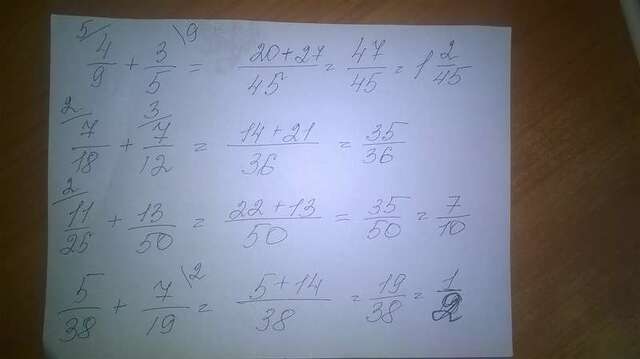 5/ 4/9 + 3/5 \9 = 20+27/45 = 47/45 = 1 2/45
2/ 7/18 + 3/ 7/12 = 14+21/36 = 35/36
2/ 11/25 + 13/50 = 22+13/50 = 35/50 = 7/10
5/38 + 7/19 \2 = 5+14/38 = 19/38 = 1/2